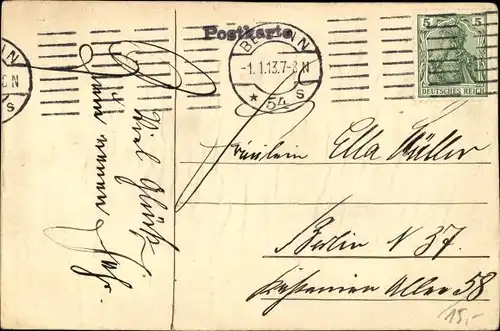 Postkarte
BERLIN
-1.1.13.7-8N
* 54 s
5 5
DEUTSCHES REICH
N
8 N
s
Viel Glück
zum neuen Jahr
Fräulein Ella Müller
Berlin N 37.
Kastanien Allee 58
15,-